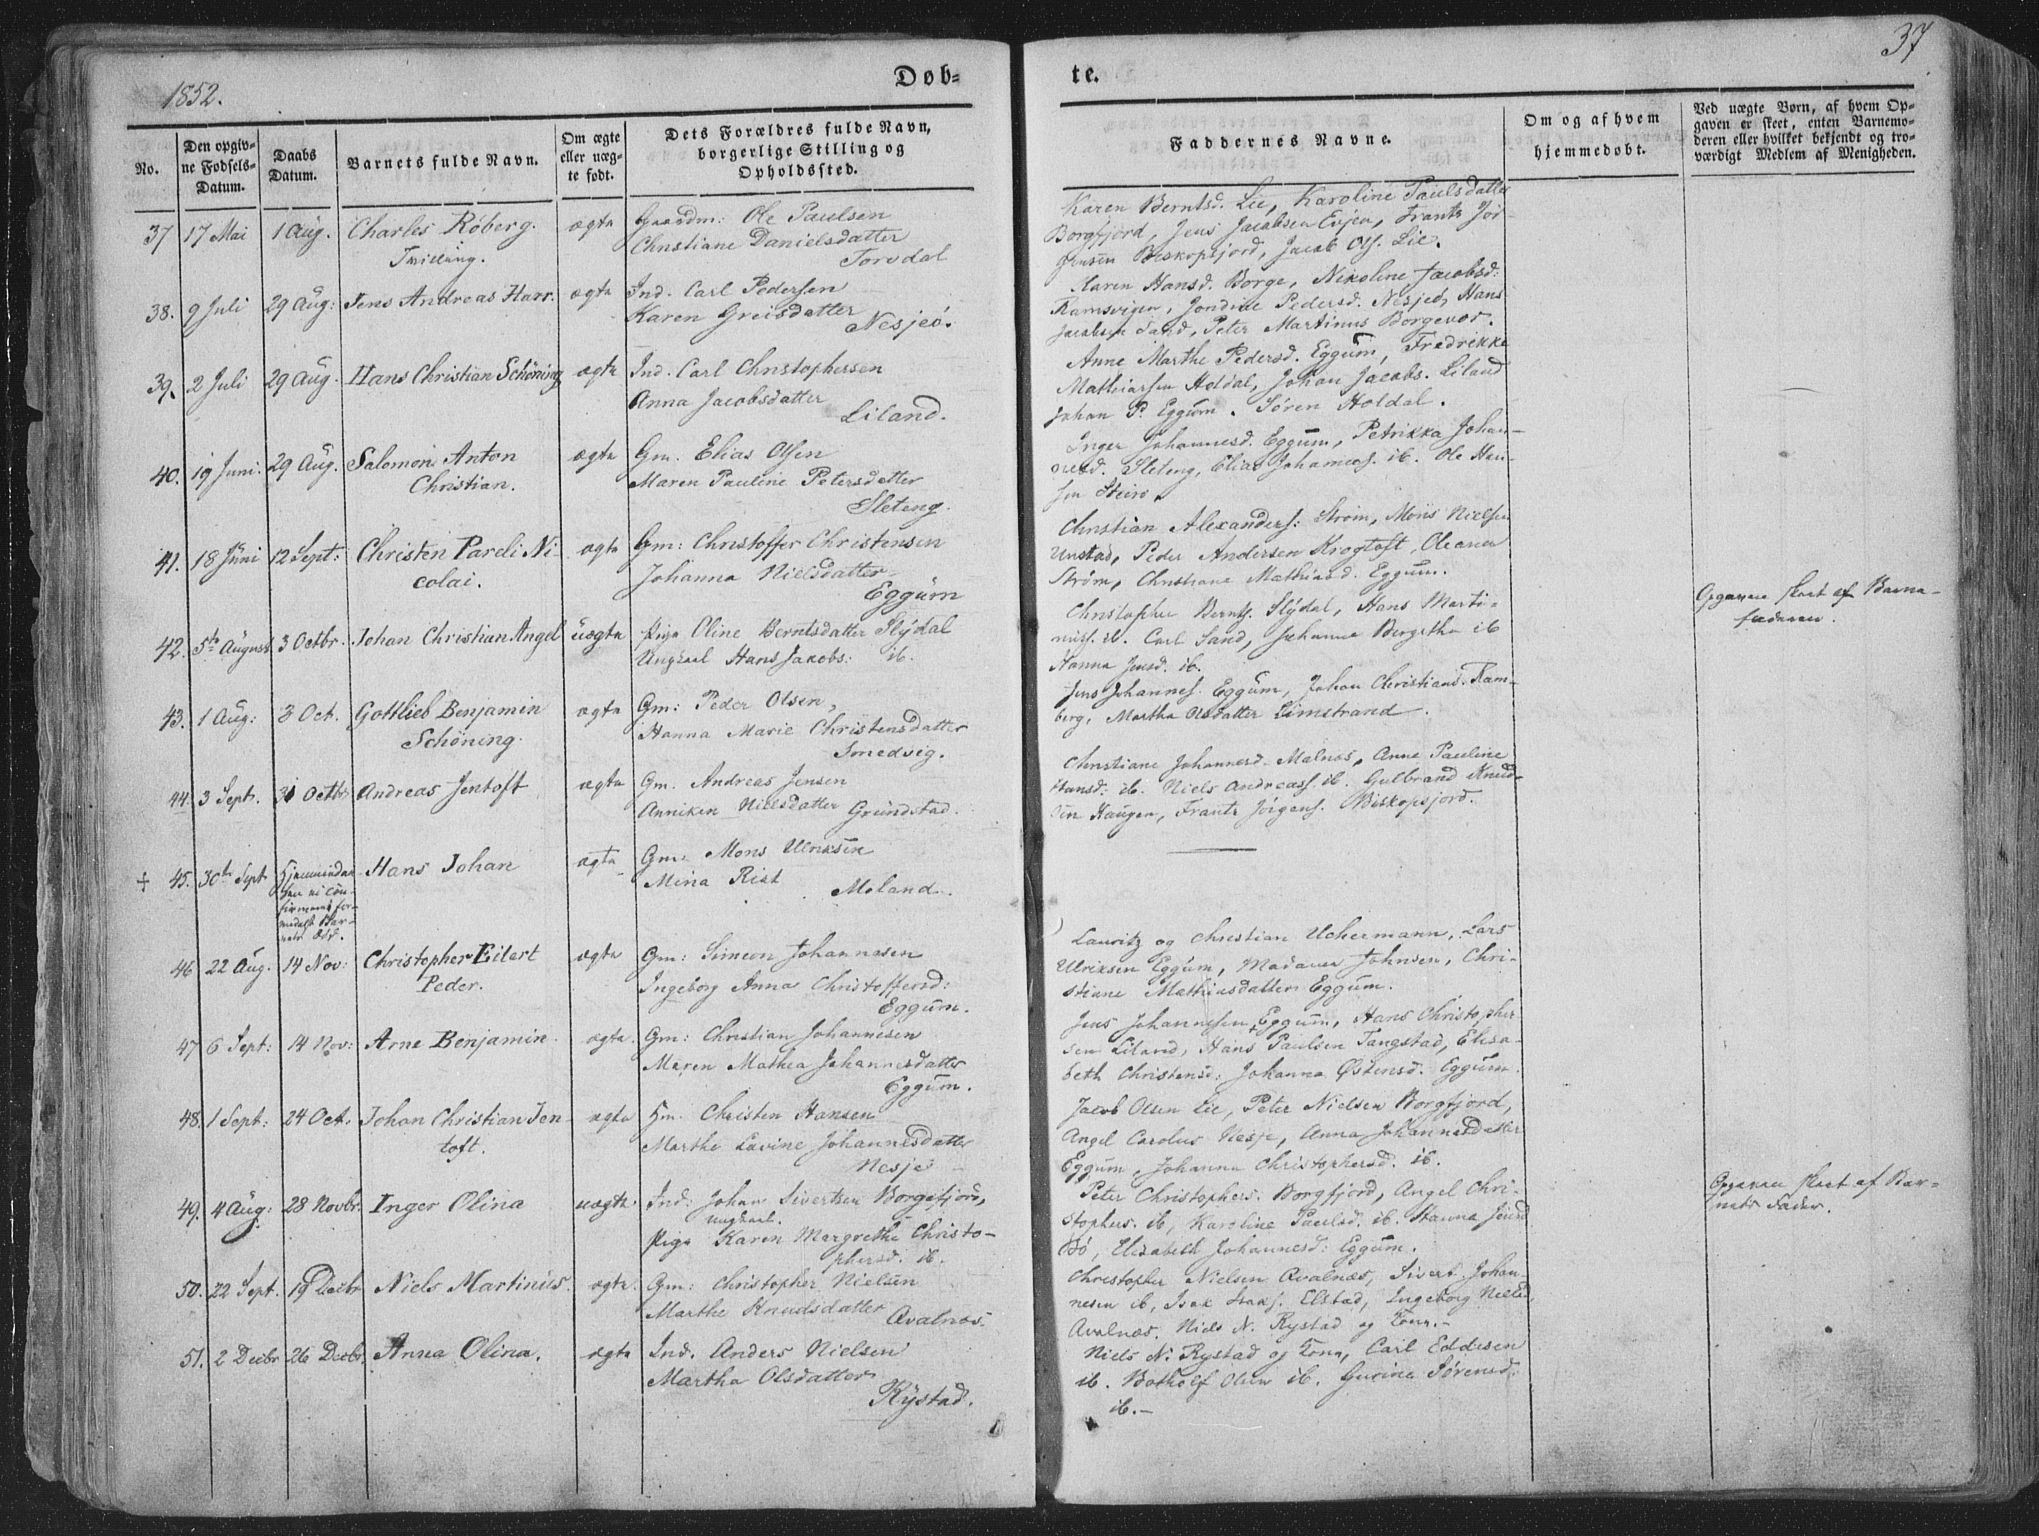 1852.
Döb-
te.
37
No.
Den opgiv-
ne Födsels-
Datum.
Daabs
Datum.
Barnets fulde Navn.
Om ægte
eller uæg-
te födt.
Dets Forældres fulde Navn,
borgerlige Stilling og
Opholdssted.
Faddernes Navne.
Om og af hvem
hjemmedöbt.
Ved uægte Börn, af hvem Op-
gaven er skeet, enten Barnemo-
deren eller hvilket bekjendt og tro-
værdigt Medlem af Menigheden.
37 17 Mai 1 Aug. Charles Röberg.
Tvilling.
ægte
Gaardm: Ole Paulsen
Christiane Danielsdatter
Torvdal
Karen Berntsd. Lie, Karoline Paulsdatter
Borgfjord, Jens Jacobsen Evjen, Frantz Jör-
gensen Biskopsjord, Jacob Ols. Lie.
38. 9 Juli 29 Aug: Jens Andreas Harr.
ægte
Ind. Carl Pedersen
Karen Greisdatter
Nesjeö.
Karen Hansd. Borge, Nikoline Jacobsd:
Ramsvigen, Jondine Pedersd. Nesjeö, Hans
Jacobsen Sand, Peter Martinus Borgevær.
39. 2 Juli 29 Aug. Hans Christian Schöning
ægte
Ind. Carl Christophersen
Anna Jacobsdatter
Liland.
Anne Marthe Pedersd. Eggum, Fredrikke
Mathiassen Holdal, Johan Jacobs. Liland
Johan P. Eggum. Sören Holdal.
40. 19 Juni. 29 Aug. Salomon Anton
Christian.
ægte
Gm. Elias Olsen
Maren Pauline Petersdatter
Sleteng.
Inger Johannesd. Eggum, Petrikka Johan-
nesd. Sleteng, Elias Johannes. ib. Ole Han-
sen Steiro.
41. 18 Juni 12 Sept: Christen Pareli Ni
colai.
ægte
Gm: Christoffer Christensen
Johanna Nielsdatter
Eggum
Christian Alexanders: Ström, Mons Nielsen
Unstad, Peder Andersen Krogtoft, Oleanna
Ström, Christiane Mathiasd. Eggum.
42. 5te August 3 Octbr. Johan Christian Angel
uægte
Pige Oline Berntsdatter Slydal
Ungkarl Hans Jakobs: ib.
Christopher Bernts. Slydal, Hans Marti-
nus. ib. Carl Sand, Johanna Bergitha ib
Hanna Jensd. ib.
Opgaven skeet af Barne-
faderen.
43. 1 Aug: 3 Oct. Gottlieb Benjamin
Schöning.
ægte
Gm: Peder Olsen,
Hanna Marie Christensdatter
Smedvig.
Jens Johannes. Eggum, Johan Christians. Ram-
berg, Martha Olsdatter Limstrand.
44. 3 Sept. 31 Octbr Andreas Jentoft
ægte
Gm. Andreas Jensen
Anniken Nielsdatter Grundstad.
Christiane Johannesd. Malnæs, Anne Pauline
Hansd: ib. Niels Andreas. ib. Gulbrand Knud-
sen Haugen, Frantz Jörgens. Biskopsjord.
† 45. 30te Sept Hjemmedøb
Hans Johan
ægte
Gm. Mons Ulriksen
Mina Rist
Moland.
46 22 Aug. 14 Nov: Christopher Eilert
Peder.
ægte
Gm: Simeon Johannesen
Ingeborg Anna Christoffersd:
Eggum.
Lauritz og Christian Uchermann, Lars
Ulriksen Eggum, Madame Johnsen, Chri-
stiane Mathiasdatter Eggum.
47 6 Sept: 14 Nov: Arne Benjamin.
ægte.
Gm: Christian Johannesen
Maren Mathea Johannesdatter
Eggum.
Jens Johannesen Eggum, Hans Christopher
sen Liland, Hans Paulsen Tangstad, Elisa-
beth Christensd: Johanna Östensd. Eggum.
48. 1 Sept: 24 Oct. Johan Christian Jen
toft.
ægte
Hm. Christen Hansen
Marthe Lavine Johannesdatter
Nesje
Jacob Olsen Lie, Peter Nielsen Borgfjord,
Angel Carolus Nesje, Anna Johannesdatter
Eggum, Johanna Christophersd. ib.
49. 4 Aug: 28 Novbr. Inger Olina
uægte
Ind. Johan Sivertsen Borgefjord,
Ungkarl.
Pige Karen Margrethe Christo-
phersd. ib.
Peter Christophers. Borgfjord, Angel Chri-
stophers. ib, Karoline Paulsd. ib. Hanna Jensd
Bö, Elisabeth Johannesd: Eggum.
Opgaven skeet af Bar-
nets Fader.
50. 22 Sept. 19 Decbr Niels Martinus.
ægte.
Gm: Christopher Nielsen
Marthe Knudsdatter
Qvalnæs.
Christopher Nielsen Qvalnæs, Sivert Johan-
nesen ib, Isak Isaks. Elstad, Ingeborg Nielsd.
Qvalnæs. Niels N. Rystad og Kone.-
51. 2 Decbr 26 Decbr. Anna Olina.
ægte
Ind. Anders Nielsen
Martha Olsdatter
Rystad.
Niels N. Rystad og Kone, Carl Eddesen
ib. Botholf Olsen ib. Gurine Sörensd:
ib.-